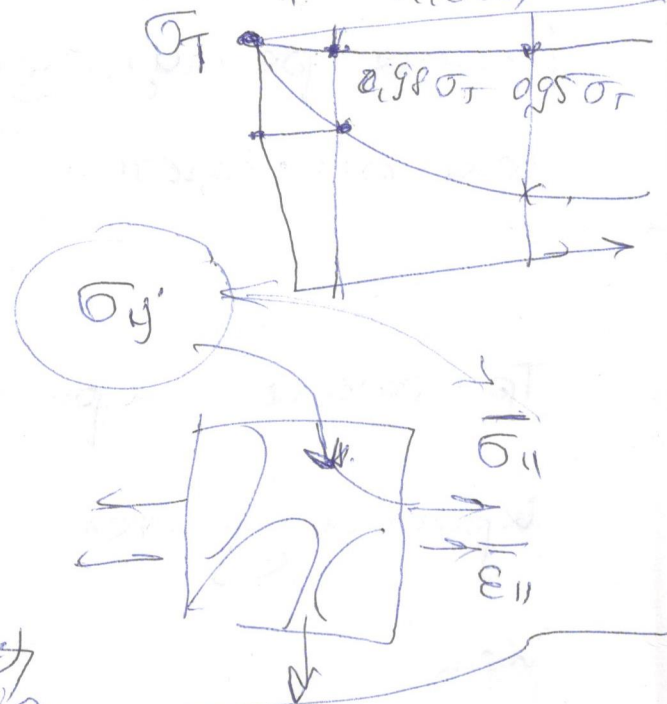 σ_T
0,98 σ_T 0,95 σ_T
σ_ij
σ̅_11
ε̅_11